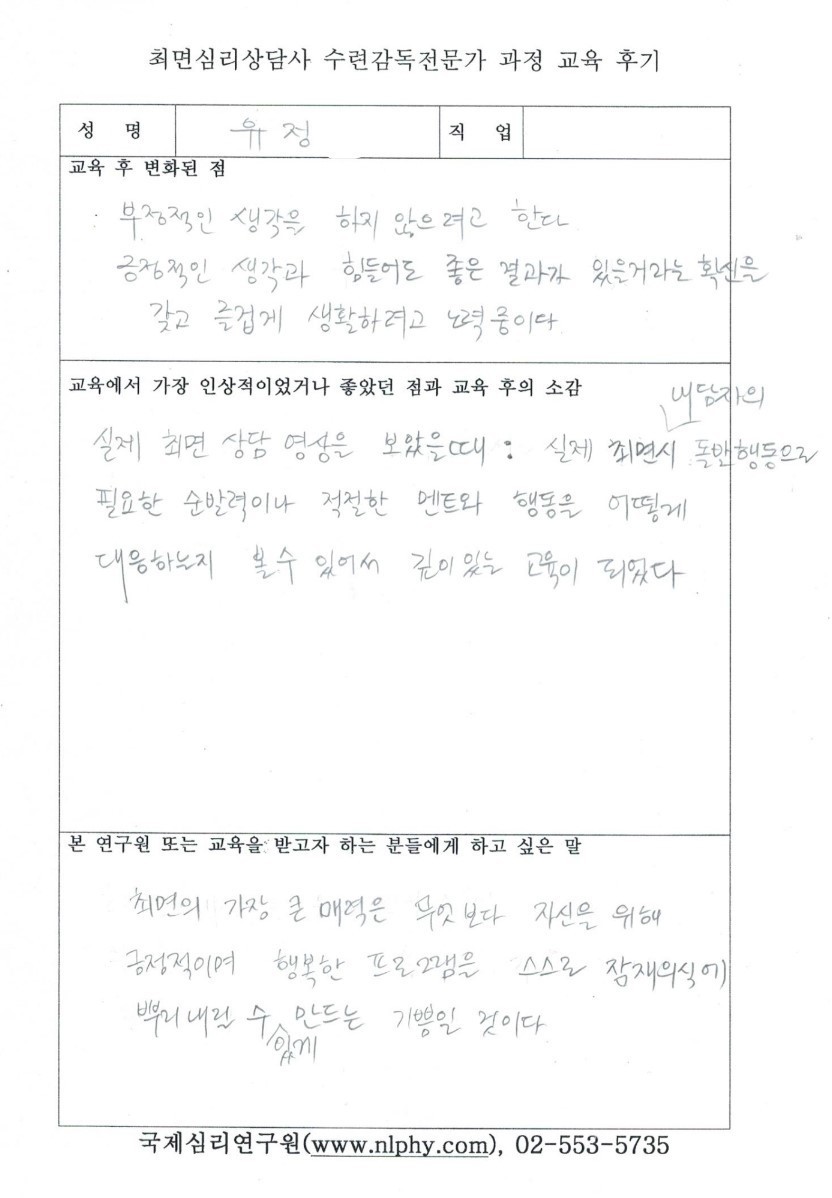 최면심리상담사 수련감독전문가 과정 교육 후기
성 명 유 정 직 업
교육 후 변화된 점
부정적인 생각을 하지 않으려고 한다
긍정적인 생각과 힘들어도 좋은 결과가 있을거라는 확신을
갖고 즐겁게 생활하려고 노력중이다
교육에서 가장 인상적이었거나 좋았던 점과 교육 후의 소감
내담자의
실제 최면 상담 영상을 보았을때 : 실제 최면시 돌발행동으로
필요한 순발력이나 적절한 멘트와 행동을 어떻게
대응하는지 볼수 있어서 깊이있는 교육이 되었다
본 연구원 또는 교육을 받고자 하는 분들에게 하고 싶은 말
최면의 가장 큰 매력은 무엇보다 자신을 위해
긍정적이며 행복한 프로그램을 스스로 잠재의식에
뿌리내릴 수 만드는 기쁨일 것이다
있게
국제심리연구원(www.nlphy.com), 02-553-5735